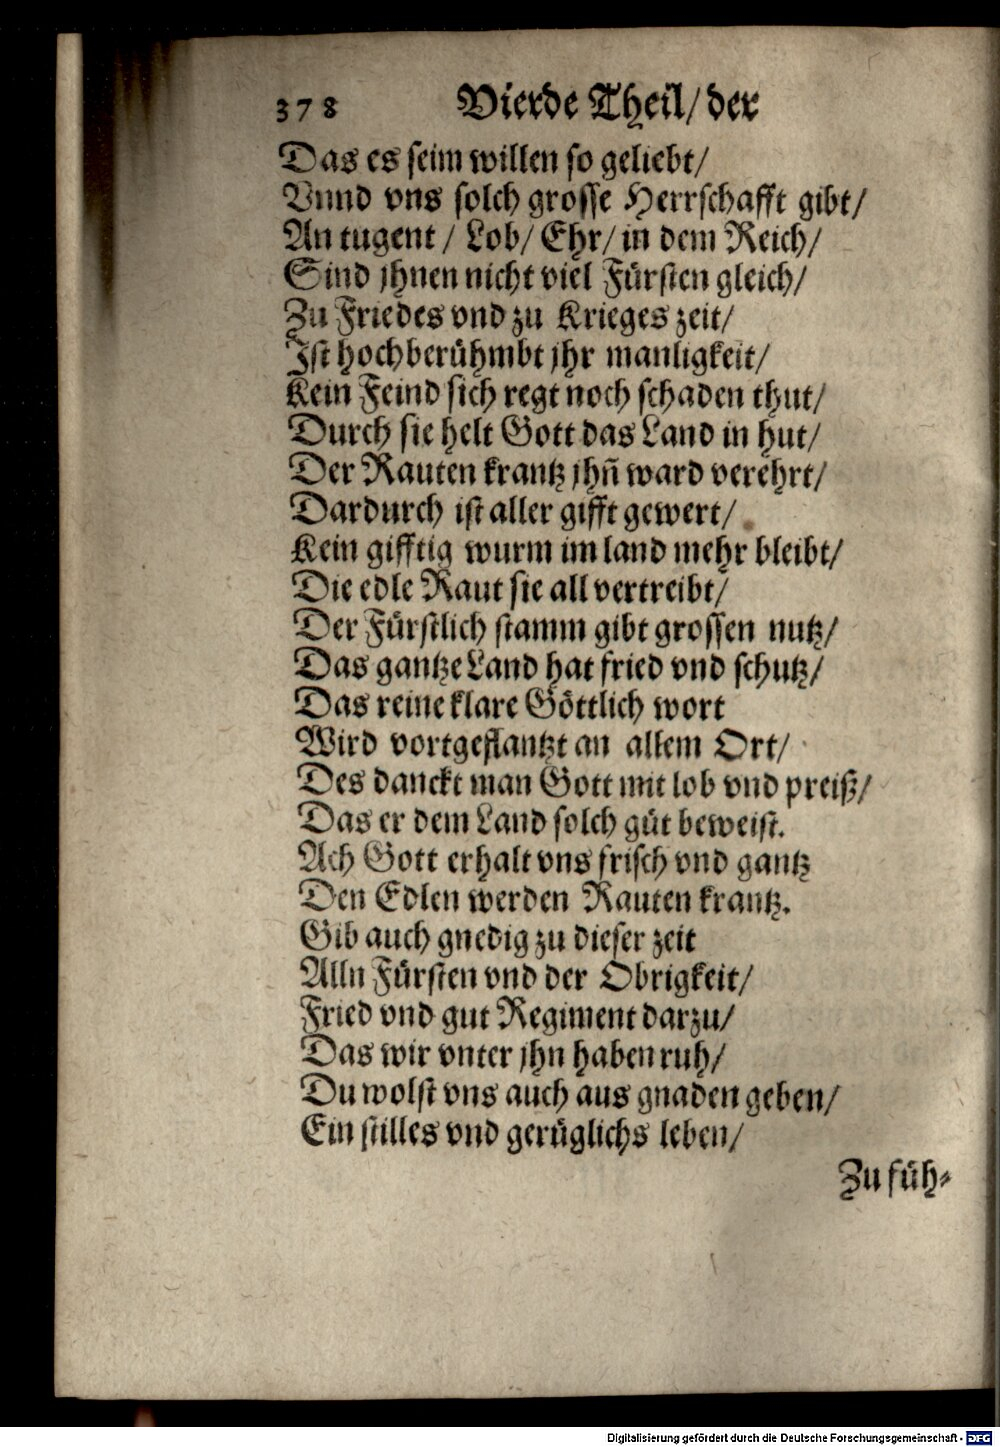 378 Vierde Theil/ der
Das es seim willen so geliebt/
Vnnd vns solch grosse Herrschafft gibt/
An tugent / Lob/ Ehr/ in dem Reich/
Sind jhnen nicht viel Fürsten gleich/
Zu Friedes vnd zu Krieges zeit/
Ist hochberühmbt jhr manligkeit/
Kein Feind sich regt noch schaden thut/
Durch sie helt Gott das Land in hut/
Der Rauten krantz jhn̄ ward verehrt/
Dardurch ist aller gifft gewert/
Kein gifftig wurm im land mehr bleibt/
Die edle Raut sie all vertreibt/
Der Fürstlich stamm gibt grossen nutz/
Das gantze Land hat fried vnd schutz/
Das reine klare Göttlich wort
Wird vortgeflantzt an allem Ort/
Des danckt man Gott mit lob vnd preiß/
Das er dem Land solch güt beweist.
Ach Gott erhalt vns frisch vnd gantz
Den Edlen werden Rauten krantz.
Gib auch gnedig zu dieser zeit
Alln Fürsten vnd der Obrigkeit/
Fried vnd gut Regiment darzu/
Das wir vnter jhn haben ruh/
Du wolst vns auch aus gnaden geben/
Ein stilles vnd gerüglichs leben/
Zu füh⸗
Digitalisierung gefördert durch die Deutsche Forschungsgemeinschaft - DFG